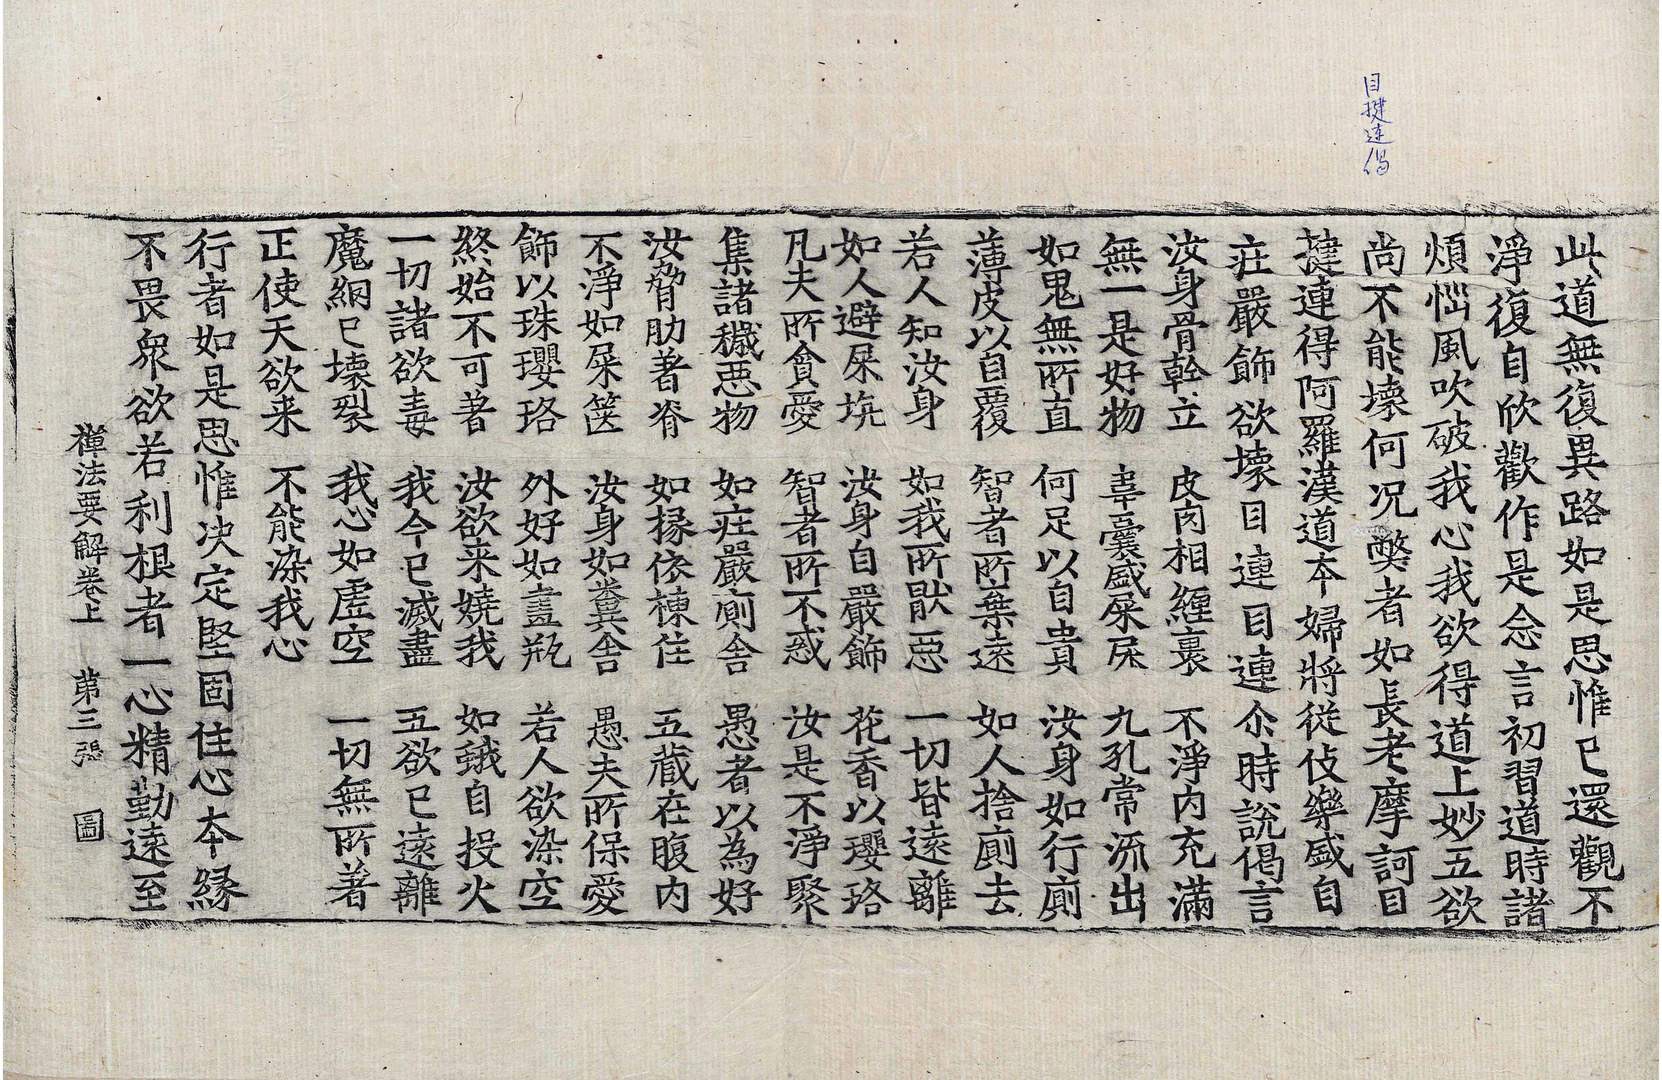 目揵連偈
此道無復異路如是思惟已還觀不
淨復自欣歡作是念言初習道時諸
煩惱風吹破我心我欲得道上妙五欲
尚不能壞何况弊者如長老摩訶目
揵連得阿羅漢道本婦將從伎樂盛自
莊嚴飾欲壞目連目連尒時說偈言
汝身骨幹立　皮肉相纏裹　不淨內充滿
無一是好物　韋囊盛屎尿　九孔常流出
如鬼無所直　何足以自貴　汝身如行廁
薄皮以自覆　智者所棄遠　如人捨廁去
若人知汝身　如我所猒惡　一切皆遠離
如人避屎坑　汝身自嚴飾　花香以瓔珞
凡夫所貪愛　智者所不惑　汝是不淨聚
集諸穢惡物　如莊嚴廁舍　愚者以為好
汝脅肋著脊　如椽依棟住　五藏在腹內
不淨如屎篋　汝身如糞舍　愚夫所保愛
飾以珠瓔珞　外好如畫瓶　若人欲染空
終始不可著　汝欲来嬈我　如蛾自投火
一切諸欲毒　我今已滅盡　五欲已遠離
魔網已壞裂　我心如虛空　一切無所著
正使天欲来　不能染我心
行者如是思惟决定堅固住心本緣
不畏衆欲若利根者一心精勤遠至
禪法要解卷上　第三張　圖